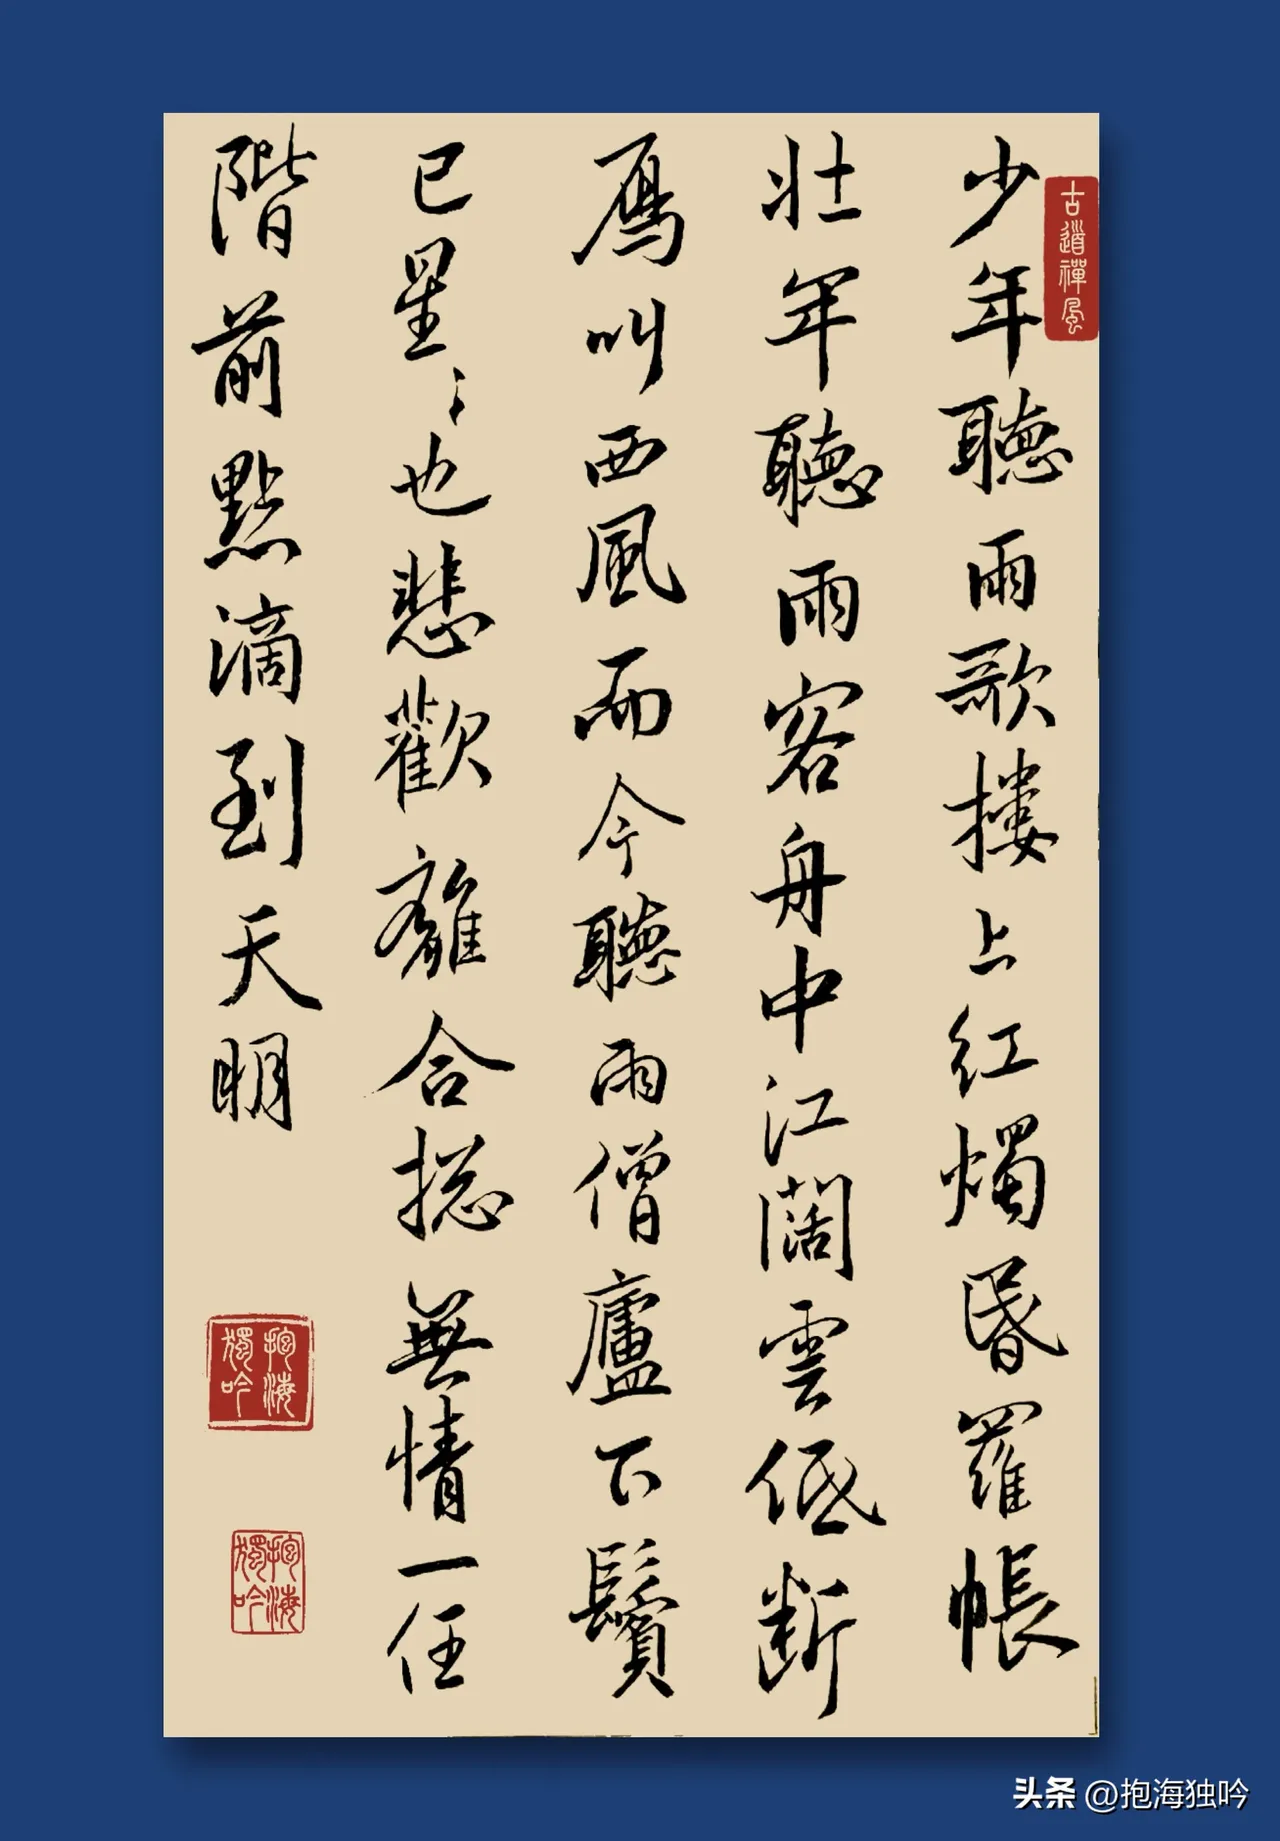 古道禪風
少年聽雨歌摟上红燭昬羅帳
壮年聽雨客舟中江闊雲低断
鴈叫西風而今聽雨僧廬下鬢
已星〻也悲歡離合捴無情一任
階前點滴到天明
抱海獨吟
抱海獨吟
头条 @抱海独吟